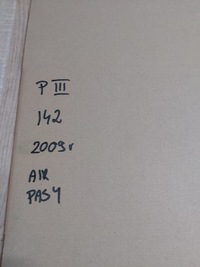 P III
142
2009r
AIR
PASY